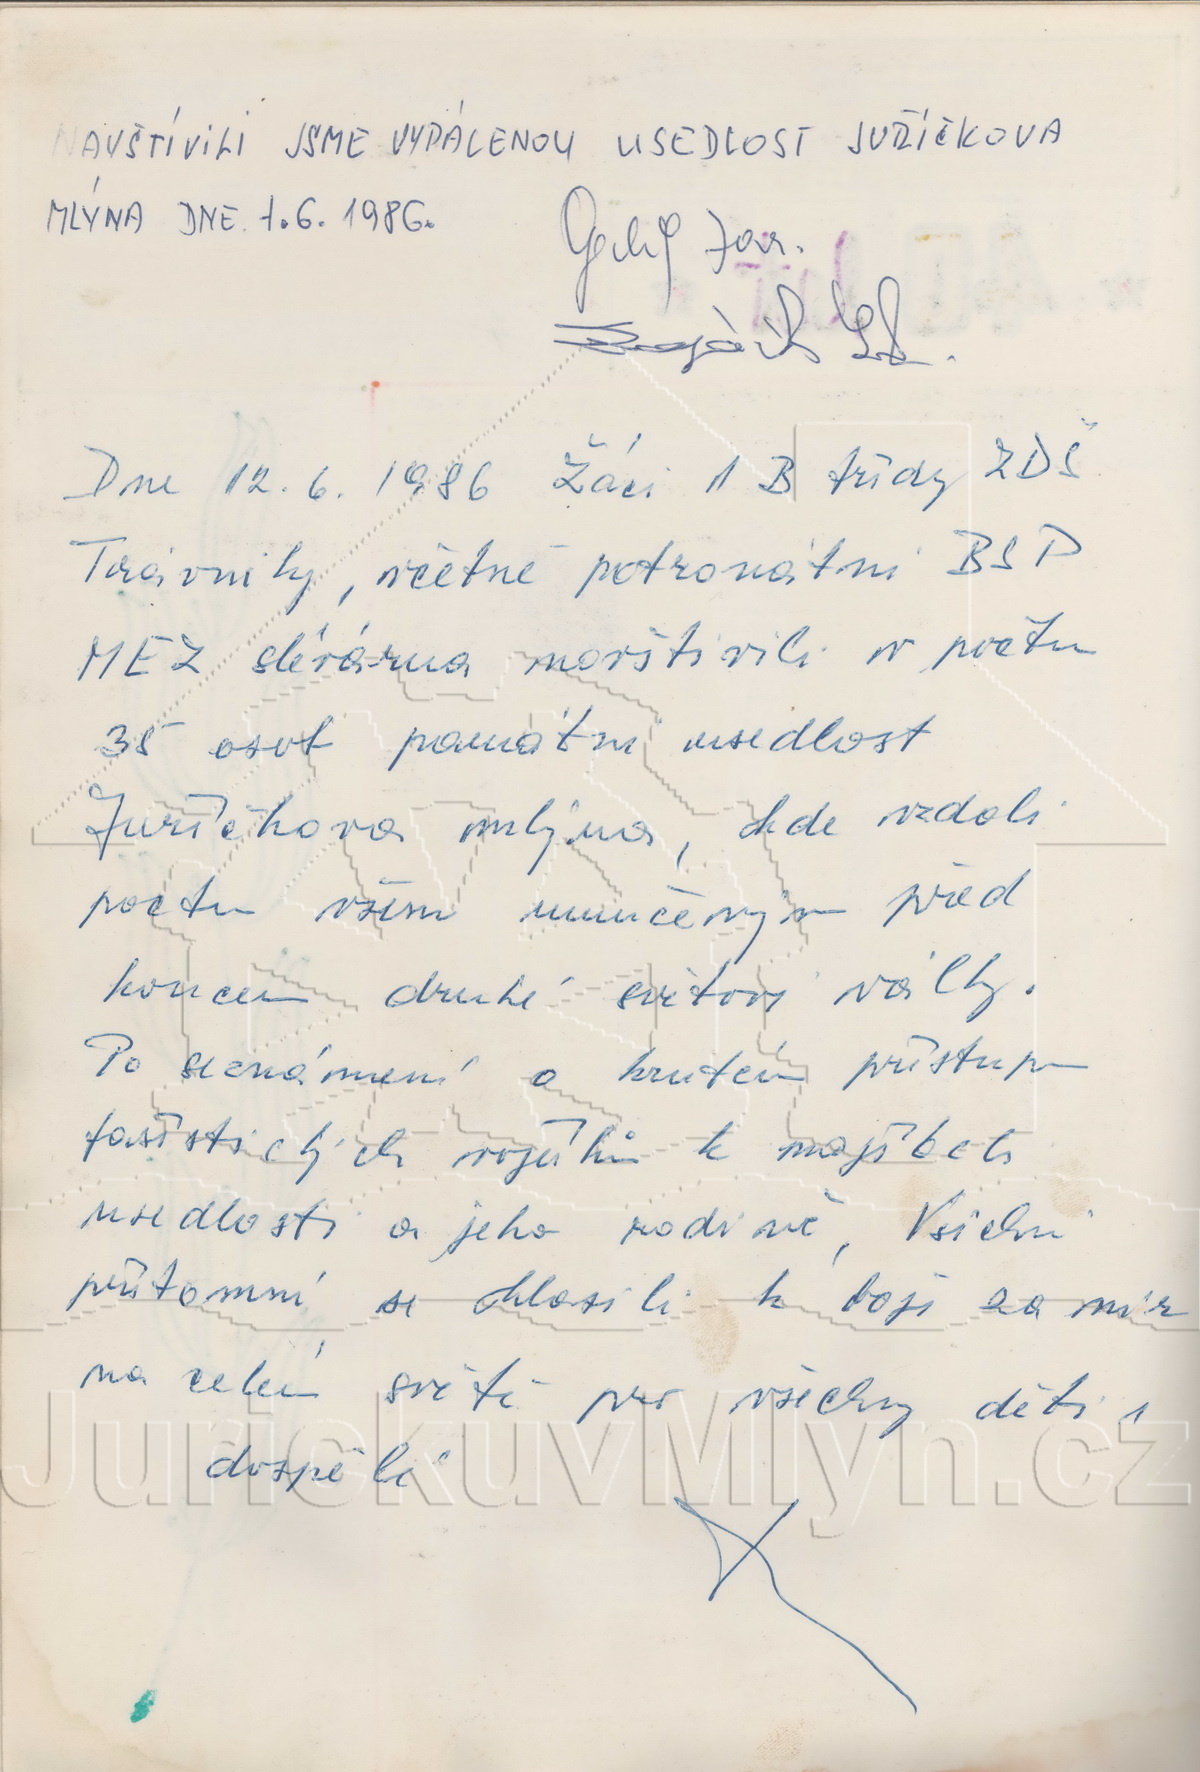 NAVŠTÍVILI JSME VYPÁLENOU USEDLOST JUŘÍČKOVA
MLÝNA DNE 1.6.1986.
Jar.
Dne 12.6.1986 Žáci 1 B třídy ZDŠ
Trávníky, včetně patronátní BSP
MEZ slévárna navštívili v počtu
35 osob památní usedlost
Juříčkova mlýna, kde vzdali
poctu všem umučeným před
koncem druhé světové války.
Po seznámení o krutém přístupu
fašistických vojáků k majiteli
usedlosti a jeho rodině, Všichni
přítomní se hlásili k boji za mír
na celém světě pro všechny děti i
dospělé
JurickuvMlyn.cz